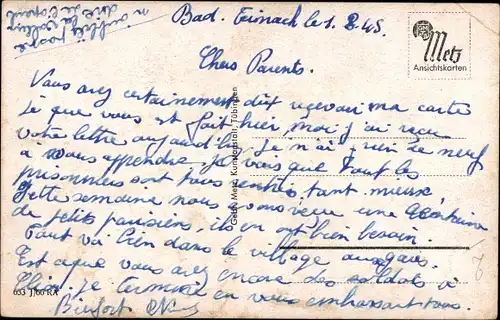 Bad. Teinach le 1. 8. 45.
Metz
Ansichtskarten
Chers Parents.
Vous avez certainement dût recevoir ma carte
que vous fait hier, moi j'ai reçu
votre lettre aujourd'hui. Je n'ai rien de neuf
a vous apprendre. Je vois que tout les
prisonniers sont tous rentrés tant mieux
Cette semaine nous avons reçu une centaine
de petits parisiens, ils en ont bien besoin.
Tout va bien dans le village
Est ce que vous avez encore des soldats a
Je termine en vous embrassant tous.
Bientôt
Gebr. Metz, Kunstanstalt, Tübingen
653 1/60 RA